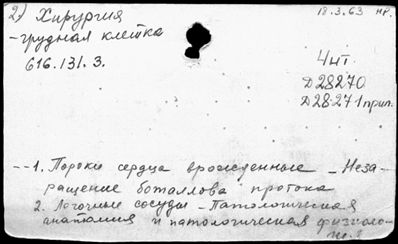 2) Хирургия
18.3.63 нр.
- грудная клетка
616.131.3.
4 чт.
Д28270
Д28-271 прил.
-- 1. Пороки сердца врожденные - Неза-
ращение боталлова протока
2. Легочные сосуды - Патологическая
анатомия и патологическая физиоло-